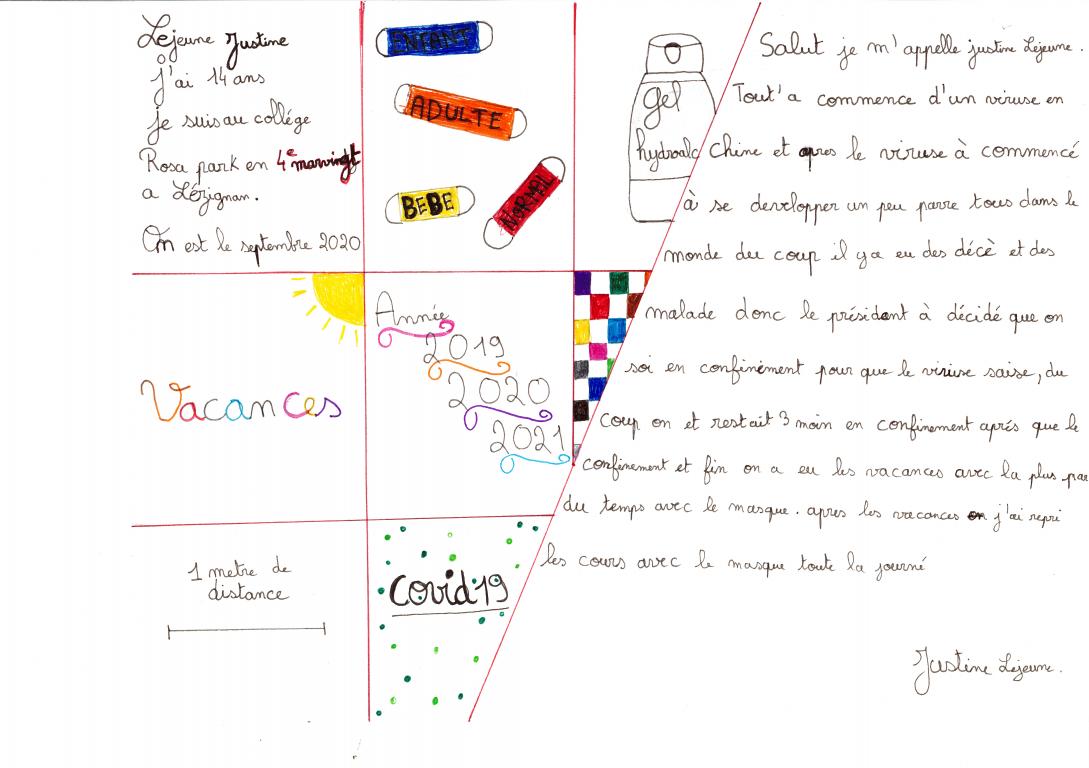 Lejeune Justine
j'ai 14 ans
je suis au collége
Rosa park en 4e marvingt
a Lézignan.
On est le septembre 2020
ENFANT
ADULTE
BEBE
NORMAL
gel
hydroalc
Vacances
Année
2019
2020
2021
1 metre de
distance
Covid19
Salut je m'appelle justine Lejeune.
Tout'a commence d'un viruse en
Chine et apres le viruse à commencé
à se developper un peu parre tous dans le
monde du coup il y a eu des décè et des
malade donc le présidant à décidé que on
soi en confinement pour que le viruse saise, du
coup on et restait 3 moin en confinement aprés que le
confinement et fin on a eu les vacances avec la plus par
du temps avec le masque. apres les vacances j'ai repri
les cours avec le masque toute la journé
Justine Lejeune.